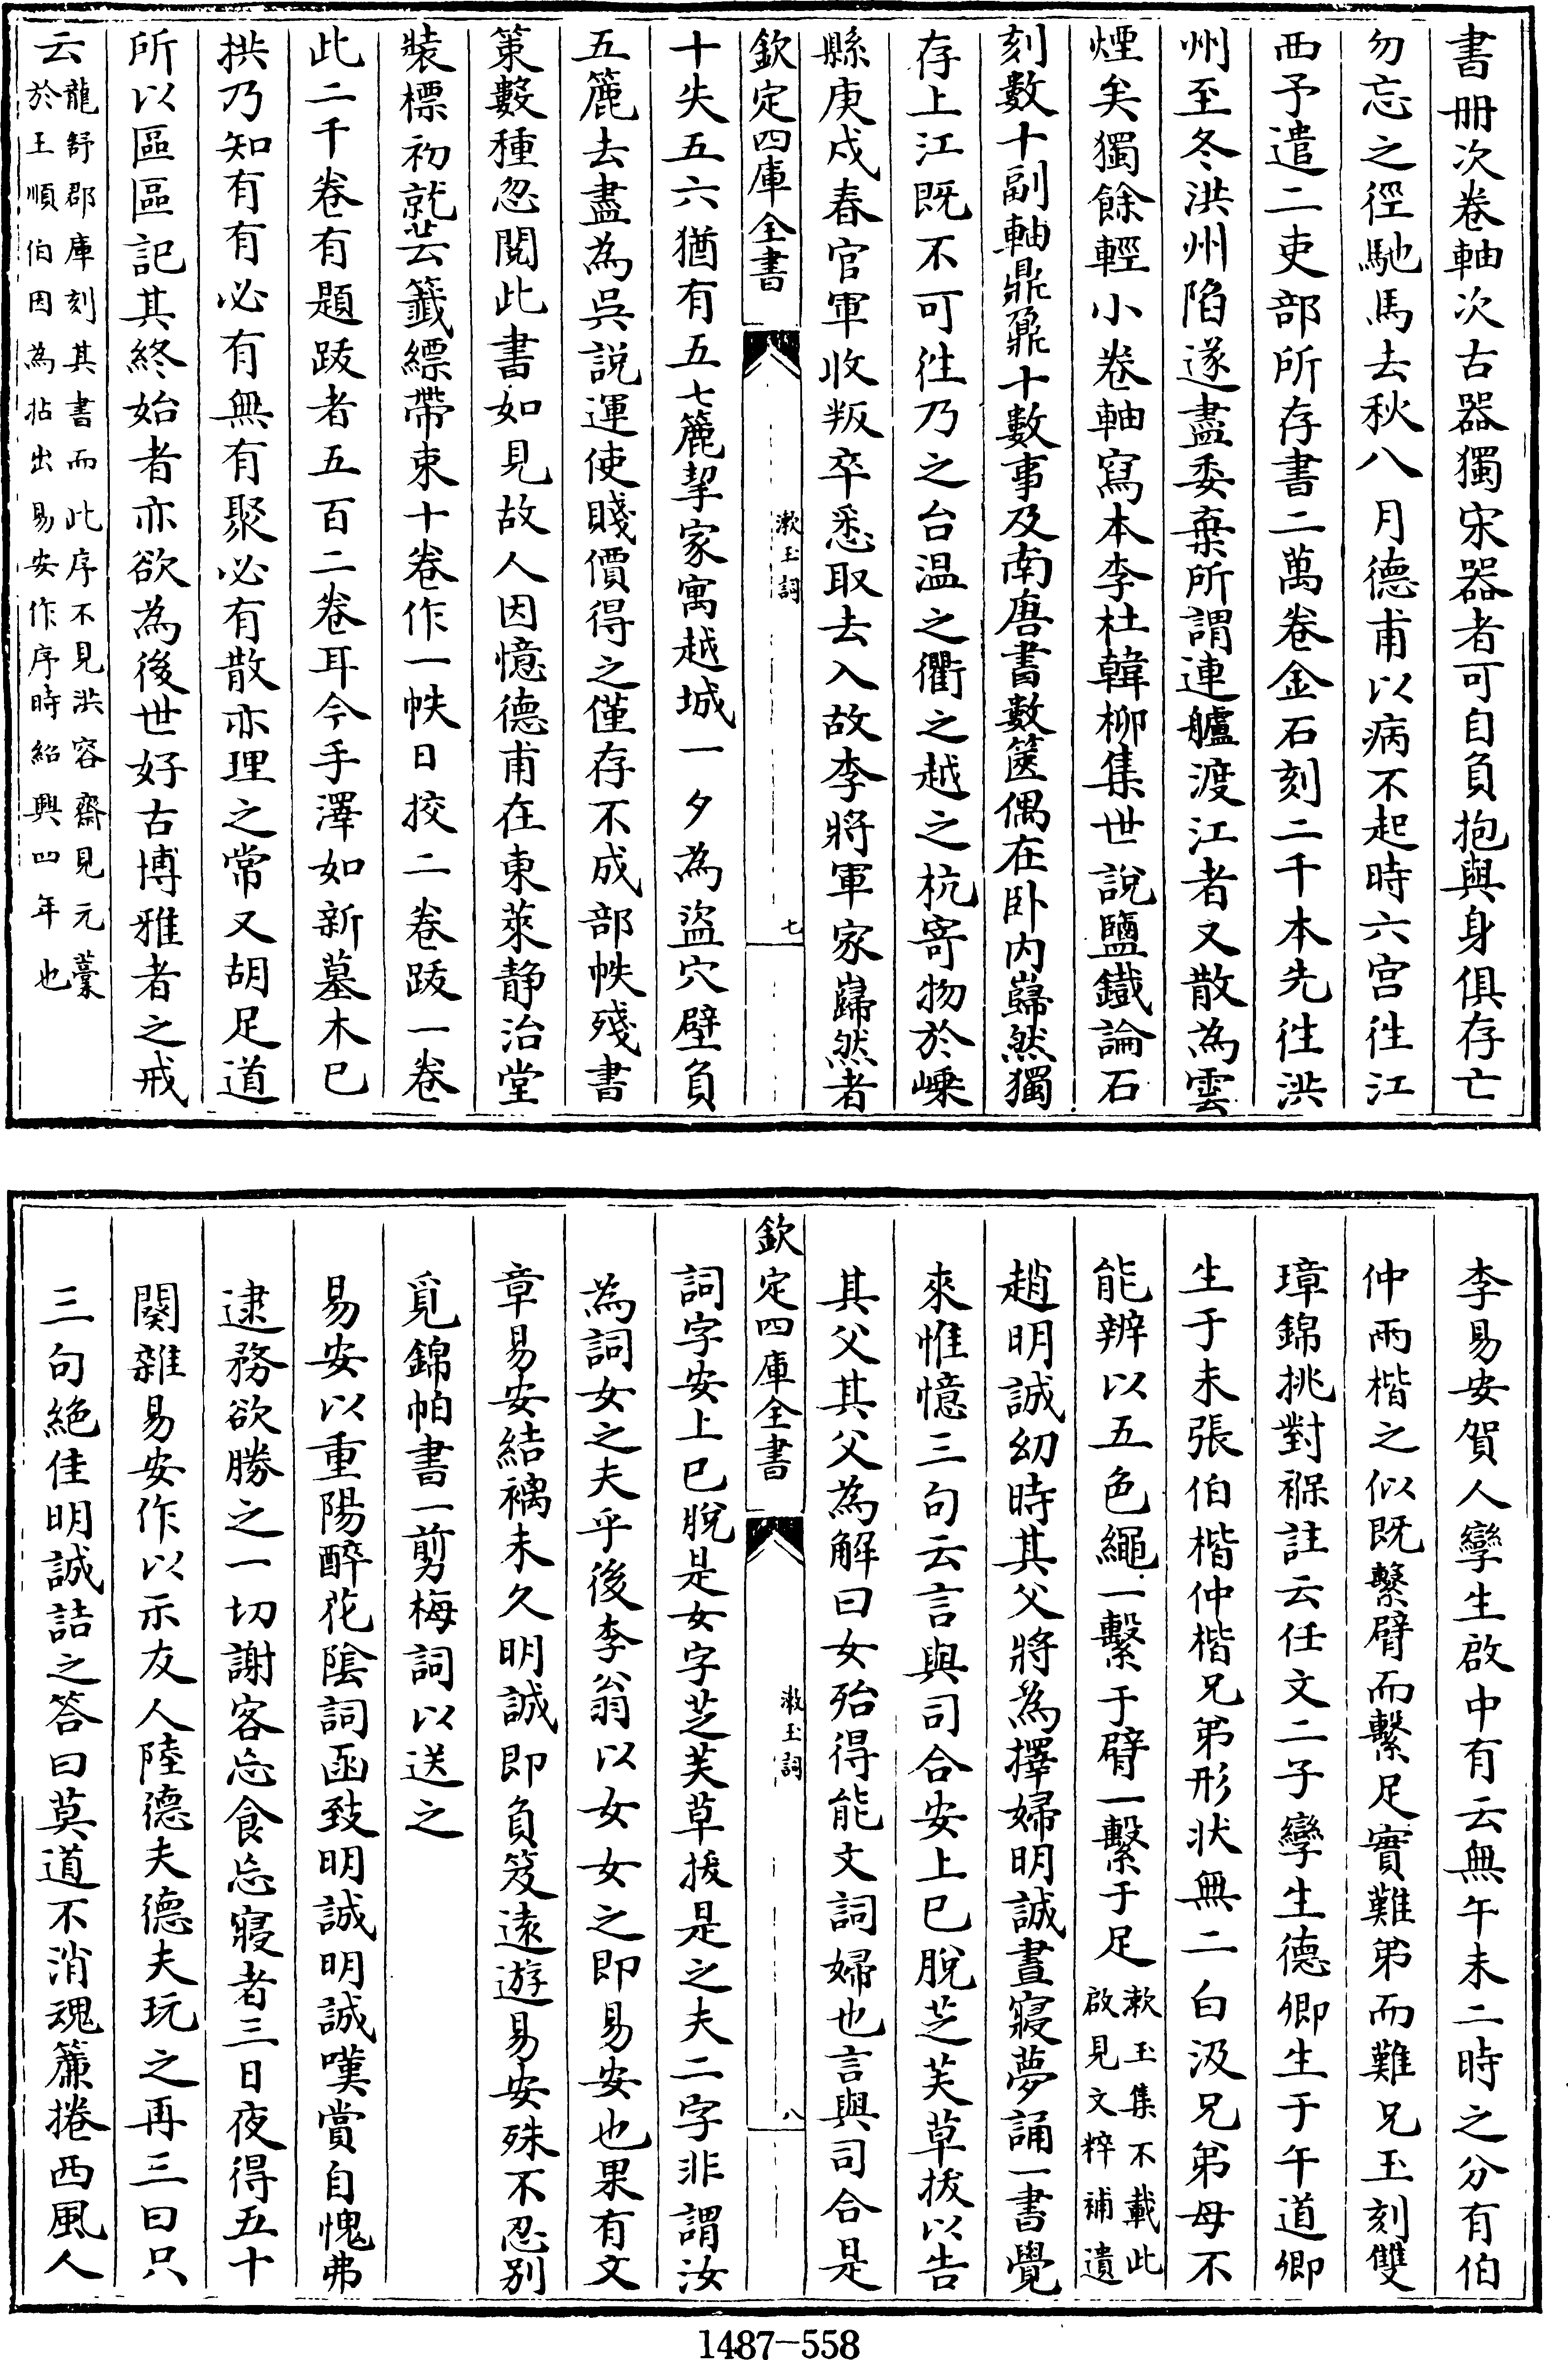 書册次卷軸次古器獨宋器者可自負抱與身俱存亡
勿忘之徑馳馬去秋八月德甫以病不起時六宫徃江
西予遣二吏部所存書二萬卷金石刻二千本先徃洪
州至冬洪州陷遂盡委棄所謂連艫渡江者又散為雲
煙矣獨餘輕小卷軸寫本李杜韓柳集世說鹽鐵論石
刻數十副軸鼎鼐十數事及南唐書數篋偶在卧内巋然獨
存上江既不可徃乃之台温之衢之越之杭寄物於嵊
縣庚戍春官軍收叛卒悉取去入故李將軍家巋然者
欽定四庫全書
漱玉詞
七
十失五六猶有五七簏挈家寓越城一夕為盜穴壁負
五簏去盡為吳說運使賤價得之僅存不成部帙殘書
策數種忽閱此書如見故人因憶德甫在東萊静治堂
裝標初就芸籤縹帶束十卷作一帙日挍二卷跋一卷
此二千卷有題跋者五百二卷耳今手澤如新墓木已
拱乃知有有必有無有聚必有散亦理之常又胡足道
所以區區記其終始者亦欲為後世好古博雅者之戒
云龍舒郡庫刻其書而此序不見洪容齋見元藁
於王順伯因為拈出易安作序時紹興四年也
李易安賀人孿生啟中有云無午未二時之分有伯
仲兩楷之似既繫臂而繫足實難弟而難兄玉刻雙
璋錦挑對褓註云任文二子孿生德卿生于午道卿
生于未張伯楷仲楷兄弟形狀無二白汲兄弟母不
能辨以五色繩一繫于臂一繫于足漱玉集不載此
啟見文粹補遺
趙明誠幼時其父將為擇婦明誠晝寢夢誦一書覺
來惟憶三句云言與司合安上已脫芝芙草拔以告
其父其父為解曰女殆得能文詞婦也言與司合是
欽定四庫全書
漱玉詞
八
詞字安上已脫是女字芝芙草拔是之夫二字非謂汝
為詞女之夫乎後李翁以女女之即易安也果有文
章易安結褵未久明誠即負笈逺遊易安殊不忍别
覓錦帕書一剪梅詞以送之
易安以重陽醉花陰詞函致明誠明誠嘆賞自愧弗
逮務欲勝之一切謝客忘食忘寢者三日夜得五十
闋雜易安作以示友人陸德夫德夫玩之再三曰只
三句絶佳明誠詰之答曰莫道不消魂簾捲西風人
1487-558